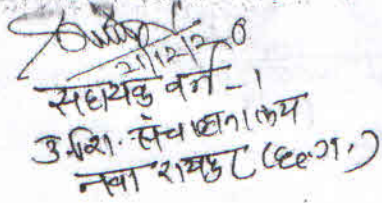 21/12/20
सहायक वर्ग - 1
उ.शि. संचालनालय
नवा रायपुर (छ.ग.)